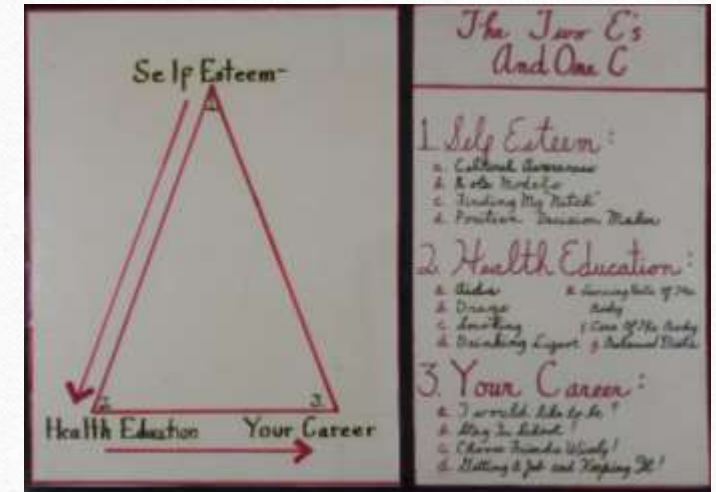 Self Esteem-
1
2.
3.
Health Education
Your Career
The Two E's
And One C
1. Self Esteem:
a. Cultural Awareness
b. Role Models
c. Finding My Nitch
d. Positive Decision Maker
2. Health Education:
a. Aids
b. Drugs
c. Smoking
d. Drinking Liquor
Parts Of The
Body
f. Care Of The Body
g. Balanced Meals
3. Your Career:
a. I would like to be?
b. Stay In School!
c. Choose Friends Wisely!
d. Getting A Job and Keeping It!